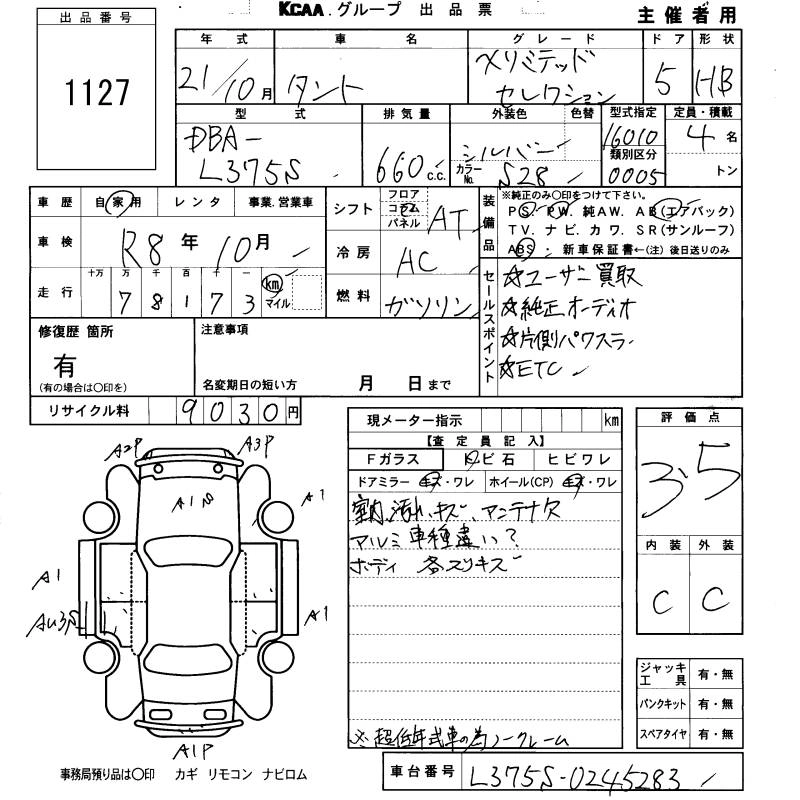 KCAA.グループ 出品票 主催者用
出品番号
1127
年式 車名 グレード ドア 形状
21/10月 タント メリミテッド セレクション 5 HB
型式 排気量 外装色 色替 型式指定 定員・積載
DBA-L375S 660c.c. シルバー カラーNo. S28 16010 4名
類別区分 0005 トン
車歴 自家用 レンタ 事業.営業車
シフト フロア コラム パネル AT
車検 R8年 10月
冷房 AC
走行 十万 万 千 百 十 一 km マイル
7 8 1 7 3
燃料 ガソリン
装備品 ※純正のみ○印をつけて下さい。
PS. PW. 純AW. AB(エアバック)
TV. ナビ. カワ. SR(サンルーフ)
ABS ・ 新車保証書←(注) 後日送りのみ
セールスポイント
☆ユーザー買取
☆純正オーディオ
☆片側パワスラ
☆ETC
修復歴 箇所
有
(有の場合は○印を)
注意事項
名変期日の短い方 月 日まで
リサイクル料 9030円
現メーター指示 km
【査定員記入】
Fガラス トビ石 ヒビワレ
ドアミラー キズ・ワレ ホイール(CP) キズ・ワレ
室内汚れ、キズ、アンテナ欠
アルミ車種違い?
ボディ 各スリキズ
※超低年式車の為ノークレーム
評価点
3.5
内装 外装
C C
A2P A3P
A1S
A1
A1
A1
A1P
ジャッキ工具 有・無
パンクキット 有・無
スペアタイヤ 有・無
事務局預り品は○印 カギ リモコン ナビロム
車台番号 L375S-0245283